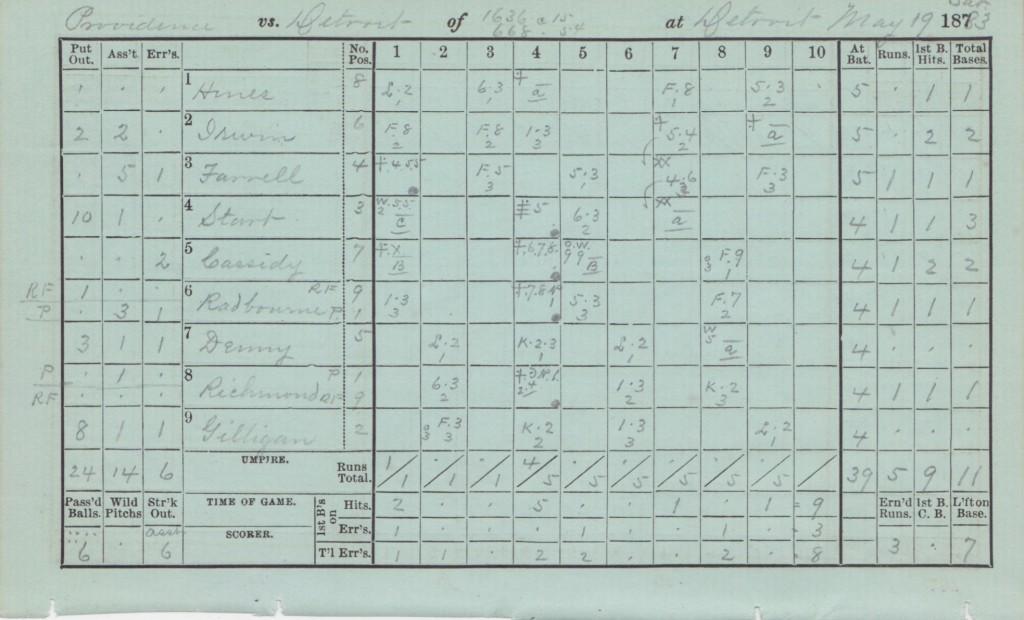 Providence vs. Detroit of 1636 c 15 668 - 54 at Detroit May 19 1883
Put Out. Ass't. Err's. No. Pos. 1 2 3 4 5 6 7 8 9 10 At Bat. Runs. 1st B. Hits. Total Bases.
· · · 1 Hines 8 £·2 1 6·3 1 ‡ a F.8 1 5·3 2 5 · 1 1
2 2 · 2 Irwin 6 F.8 2 F.8 2 1·3 3 ‡ 5.4 2 ‡ a 5 · 2 2
· 5 1 3 Farrell 4 ‡.4.55 F.5 3 5·3 1 xx 4·6 3 F.3 3 5 1 1 1
10 1 · 4 Start 3 W.55 2 C ‡ 5 6·3 2 xx a 4 1 1 3
· · 2 5 Cassidy 7 ‡.X B ‡.6.7.8. O.W. 99 B 03 F.9 1 4 1 2 2
RF 1 · · 6 Radbourne RF 9 1·3 3 ‡.7.8 5·3 3 F.7 2 4 1 1 1
P · 3 1 P. 1
3 1 1 7 Denny 5 £·2 1 K·2·3 1 £·2 1 W 5 a 4 · · ·
P · 1 · 8 Richmond P 1 6·3 2 1·3 2 K·2 3 4 1 1 1
RF · · · RF 9
8 1 1 9 Gilligan 2 03 F.3 3 K·2 2 1·3 3 £·2 1 4 · · ·
24 14 6 UMPIRE. Runs Total. 1/1 ·/1 ·/1 4/5 ·/5 ·/5 ·/5 ·/5 ·/5 / 39 5 9 11
Pass'd Balls. Wild Pitchs Str'k Out. TIME OF GAME. 1st B.'s on Hits. 2 · · 5 · · 1 · 1 = 9 Ern'd Runs. 1st B. C. B. L'fton Base.
6 · asst 6 SCORER. Err's. 1 · · · 1 · · 1 · = 3 3 · 7
T'l Err's. 1 1 · 2 2 · · 2 · = 8